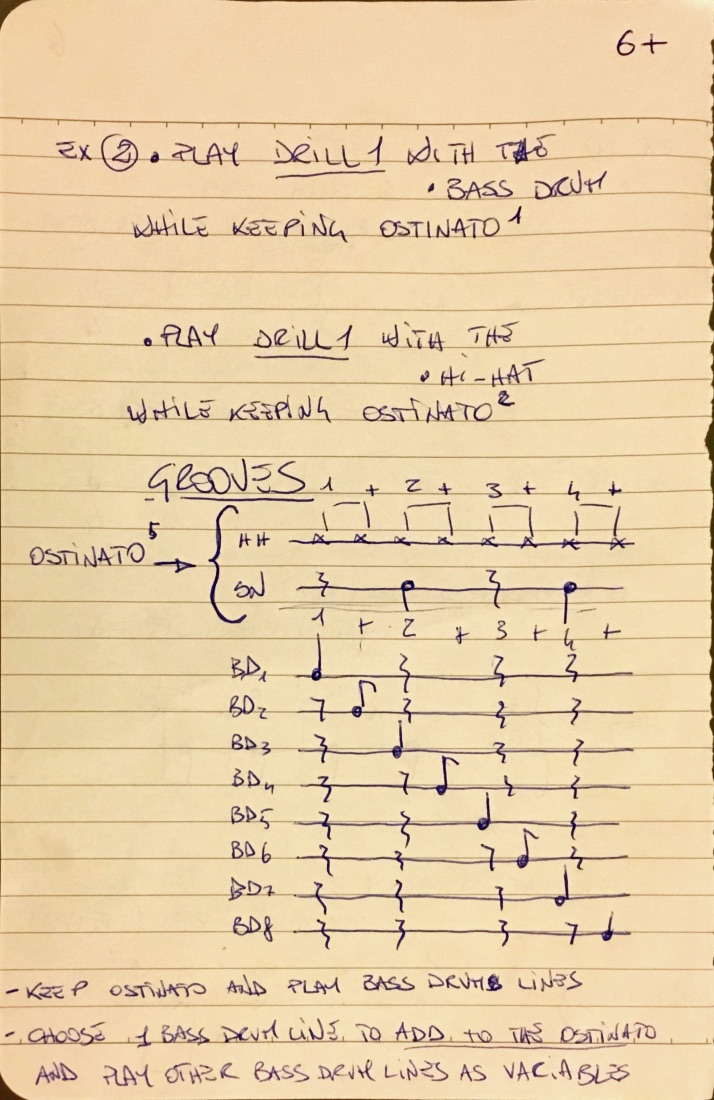 6+
EX ② • PLAY DRILL 1 WITH THE
• BASS DRUM
WHILE KEEPING OSTINATO 1
• PLAY DRILL 1 WITH THE
• HI-HAT
WHILE KEEPING OSTINATO 2
GROOVES 1 + 2 + 3 + 4 +
OSTINATO 5 → HH
SN
1 + 2 + 3 + 4 +
BD1
BD2
BD3
BD4
BD5
BD6
BD7
BD8
- KEEP OSTINATO AND PLAY BASS DRUM LINES
- CHOOSE 1 BASS DRUM LINE TO ADD TO THE OSTINATO
AND PLAY OTHER BASS DRUM LINES AS VARIABLES